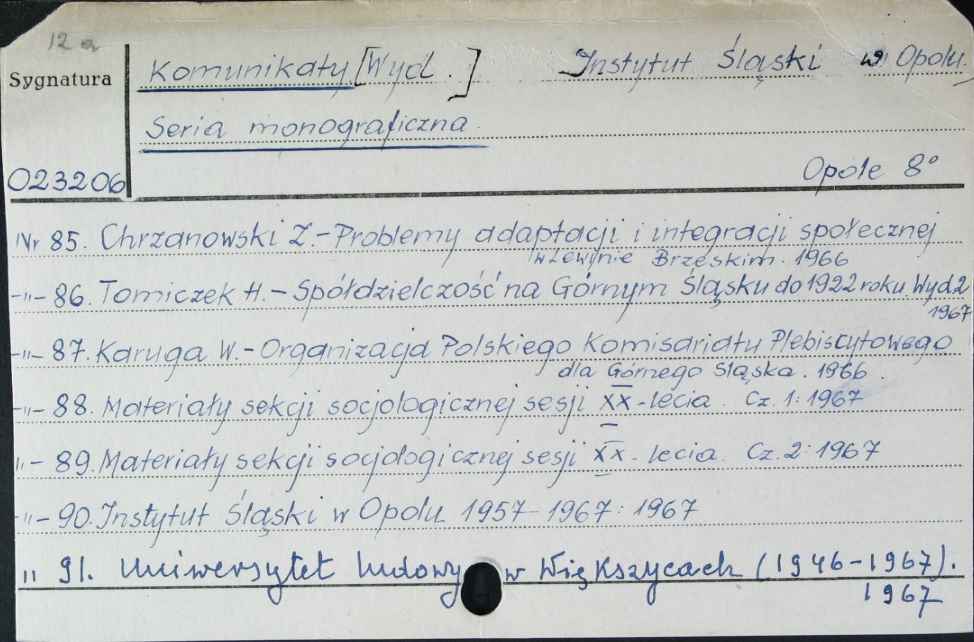 12 a
Sygnatura
Komunikaty [Wyd.] Instytut Śląski w Opolu.
Seria monograficzna.
023206
Opole 8°
Nr 85. Chrzanowski Z.-Problemy adaptacji i integracji społecznej
w Lewinie Brzeskim. 1966
-"- 86. Tomiczek H.-Spółdzielczość na Górnym Śląsku do 1922 roku. Wyd.2
1967
-"- 87. Karuga W.-Organizacja Polskiego Komisariatu Plebiscytowego
dla Górnego Śląska. 1966.
-"- 88. Materiały sekcji socjologicznej sesji XX-lecia. Cz. 1: 1967
"- 89. Materiały sekcji socjologicznej sesji XX-lecia. Cz. 2: 1967
-"- 90. Instytut Śląski w Opolu 1957-1967: 1967
" 91. Uniwersytet ludowy w Większycach (1946-1967).
1967